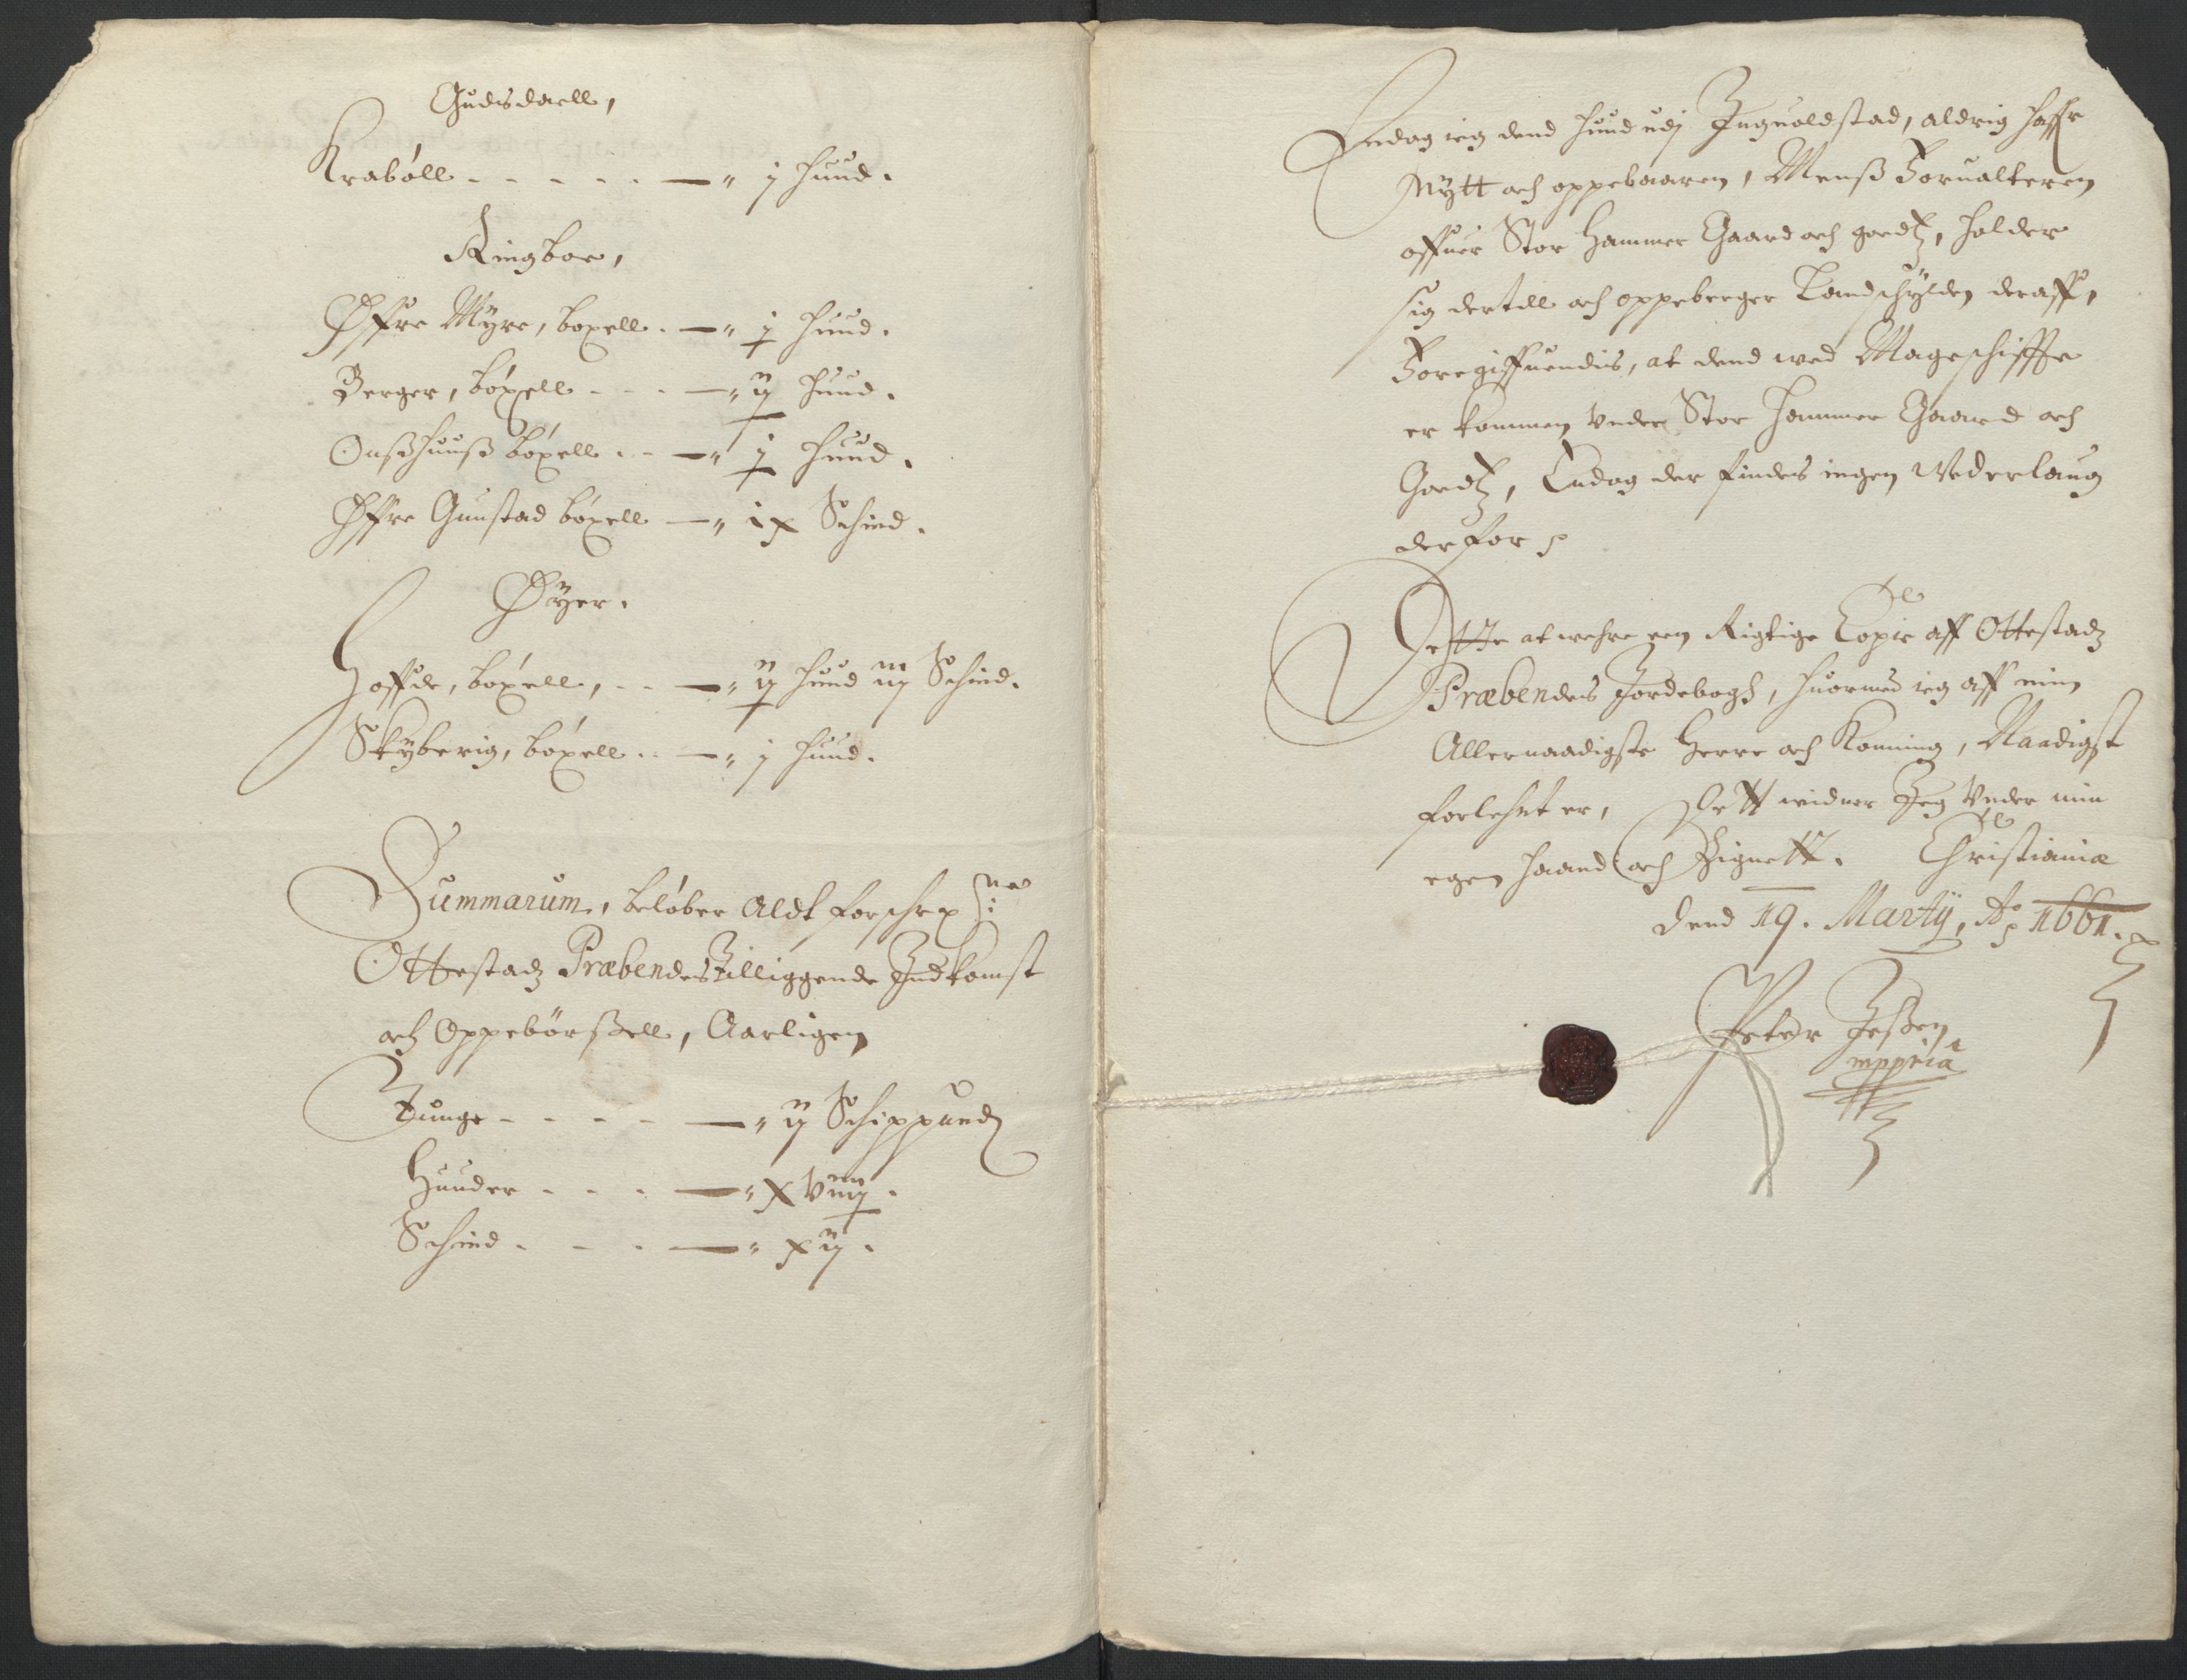 Gudisdaell,
Kraböll - - - - - — " j Huud.
Ringboe,
Øffre Myre, boxell. — " j Huud.
Berger, böxell - - - — " ij Huud.
Onßhuuß böxell . - — " j Huud.
Øffre Gunstad böxell — " ix Schind.
Øÿer.
Hoffde, böxell, - - — " ij Huud iij Schind.
Skÿberig, böxell .. — " j Huud.
Summarum, belöber Aldt forschr:ne
Ottestadz Præbendes Tilliggende Indkomst
och Oppebörßell, Aarligen
Tunge - - - - — " ij Schippund
Huuder - - - — " XViiij.
Schind . - . — " xij.
Endog ieg dend Huud udj Ingvoldstad, aldrig haffr
Nÿtt och oppebaaren, Menß Forualteren
offuer Stor Hammer Gaard och goedtz, holder
sig dertill och oppeberger Landschÿlden deraff,
Foregiffuendis, at dend wed Mageschiffte
er kommen vnder Stor Hammer Gaard och
Goedtz, Endog der findes ingen Wederlaug
derfor p
Dette at wehre een Rigtige Copie aff Ottestadz
Præbendes Jordebogh, huormed ieg aff min
Allernaadigste Herre och Konning, Naadigst
forlehnt er, Dett widner Jeg Vnder min
egen haand och Zignett. Christianiæ
Dend 19. Martij, Ao 1661.
Peter Jeßen
mppria